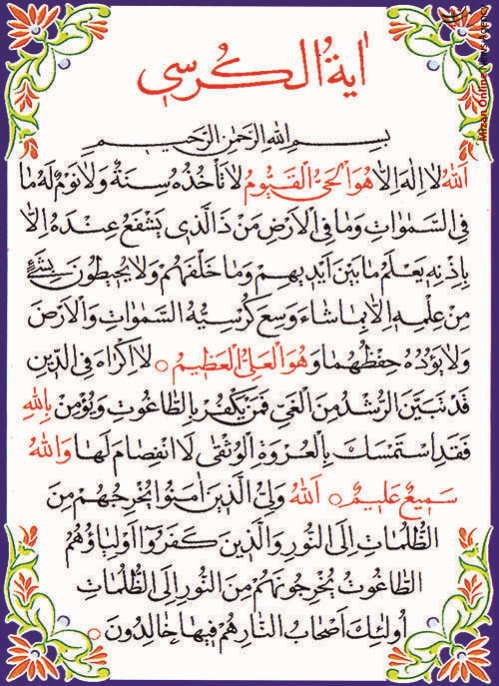 اٰیةُ الْکُرسی
بِسمِ اللهِ الرَّحمٰنِ الرَّحیمِ
اَللهُ لا اِلهَ اِلاّ هُوَ الْحَیُّ الْقَیُّومُ لا تَأخُذُهُ سِنَةٌ وَلا نَوْمٌ لَهُ ما
فِی السَّمٰواتِ وَما فِی الْاَرْضِ مَنْ ذَا الَّذی یَشْفَعُ عِنْدَهُ اِلاّ
بِاِذْنِهِ یَعْلَمُ ما بَیْنَ اَیْدیهِمْ وَما خَلْفَهُمْ وَلا یُحیطُونَ بِشَیْءٍ
مِنْ عِلْمِهِ اِلاّ بِما شاءَ وَسِعَ کُرْسِیُّهُ السَّمٰواتِ وَالْاَرْضَ
وَلا یَؤُدُهُ حِفْظُهُما وَهُوَ الْعَلِیُّ الْعَظیمُ ○ لا اِکْراهَ فِی الدّینِ
قَدْ تَبَیَّنَ الرُّشْدُ مِنَ الْغَیِّ فَمَنْ یَکْفُرْ بِالطّاغُوتِ وَیُؤْمِنْ بِاللهِ
فَقَدِ اسْتَمْسَكَ بِالْعُرْوَةِ الْوُثْقی لَا انْفِصامَ لَها وَاللهُ
سَمیعٌ عَلیمٌ ○ اَللهُ وَلِیُّ الَّذینَ اٰمَنُوا یُخْرِجُهُمْ مِنَ
الظُّلُماتِ اِلَی النُّورِ وَالَّذینَ کَفَرُوا اَوْلِیاؤُهُمُ
الطّاغُوتُ یُخْرِجُونَهُمْ مِنَ النُّورِ اِلَی الظُّلُماتِ
اُولٰئِكَ اَصْحابُ النّارِ هُمْ فیها خٰالِدُونَ ○
Mizan Online